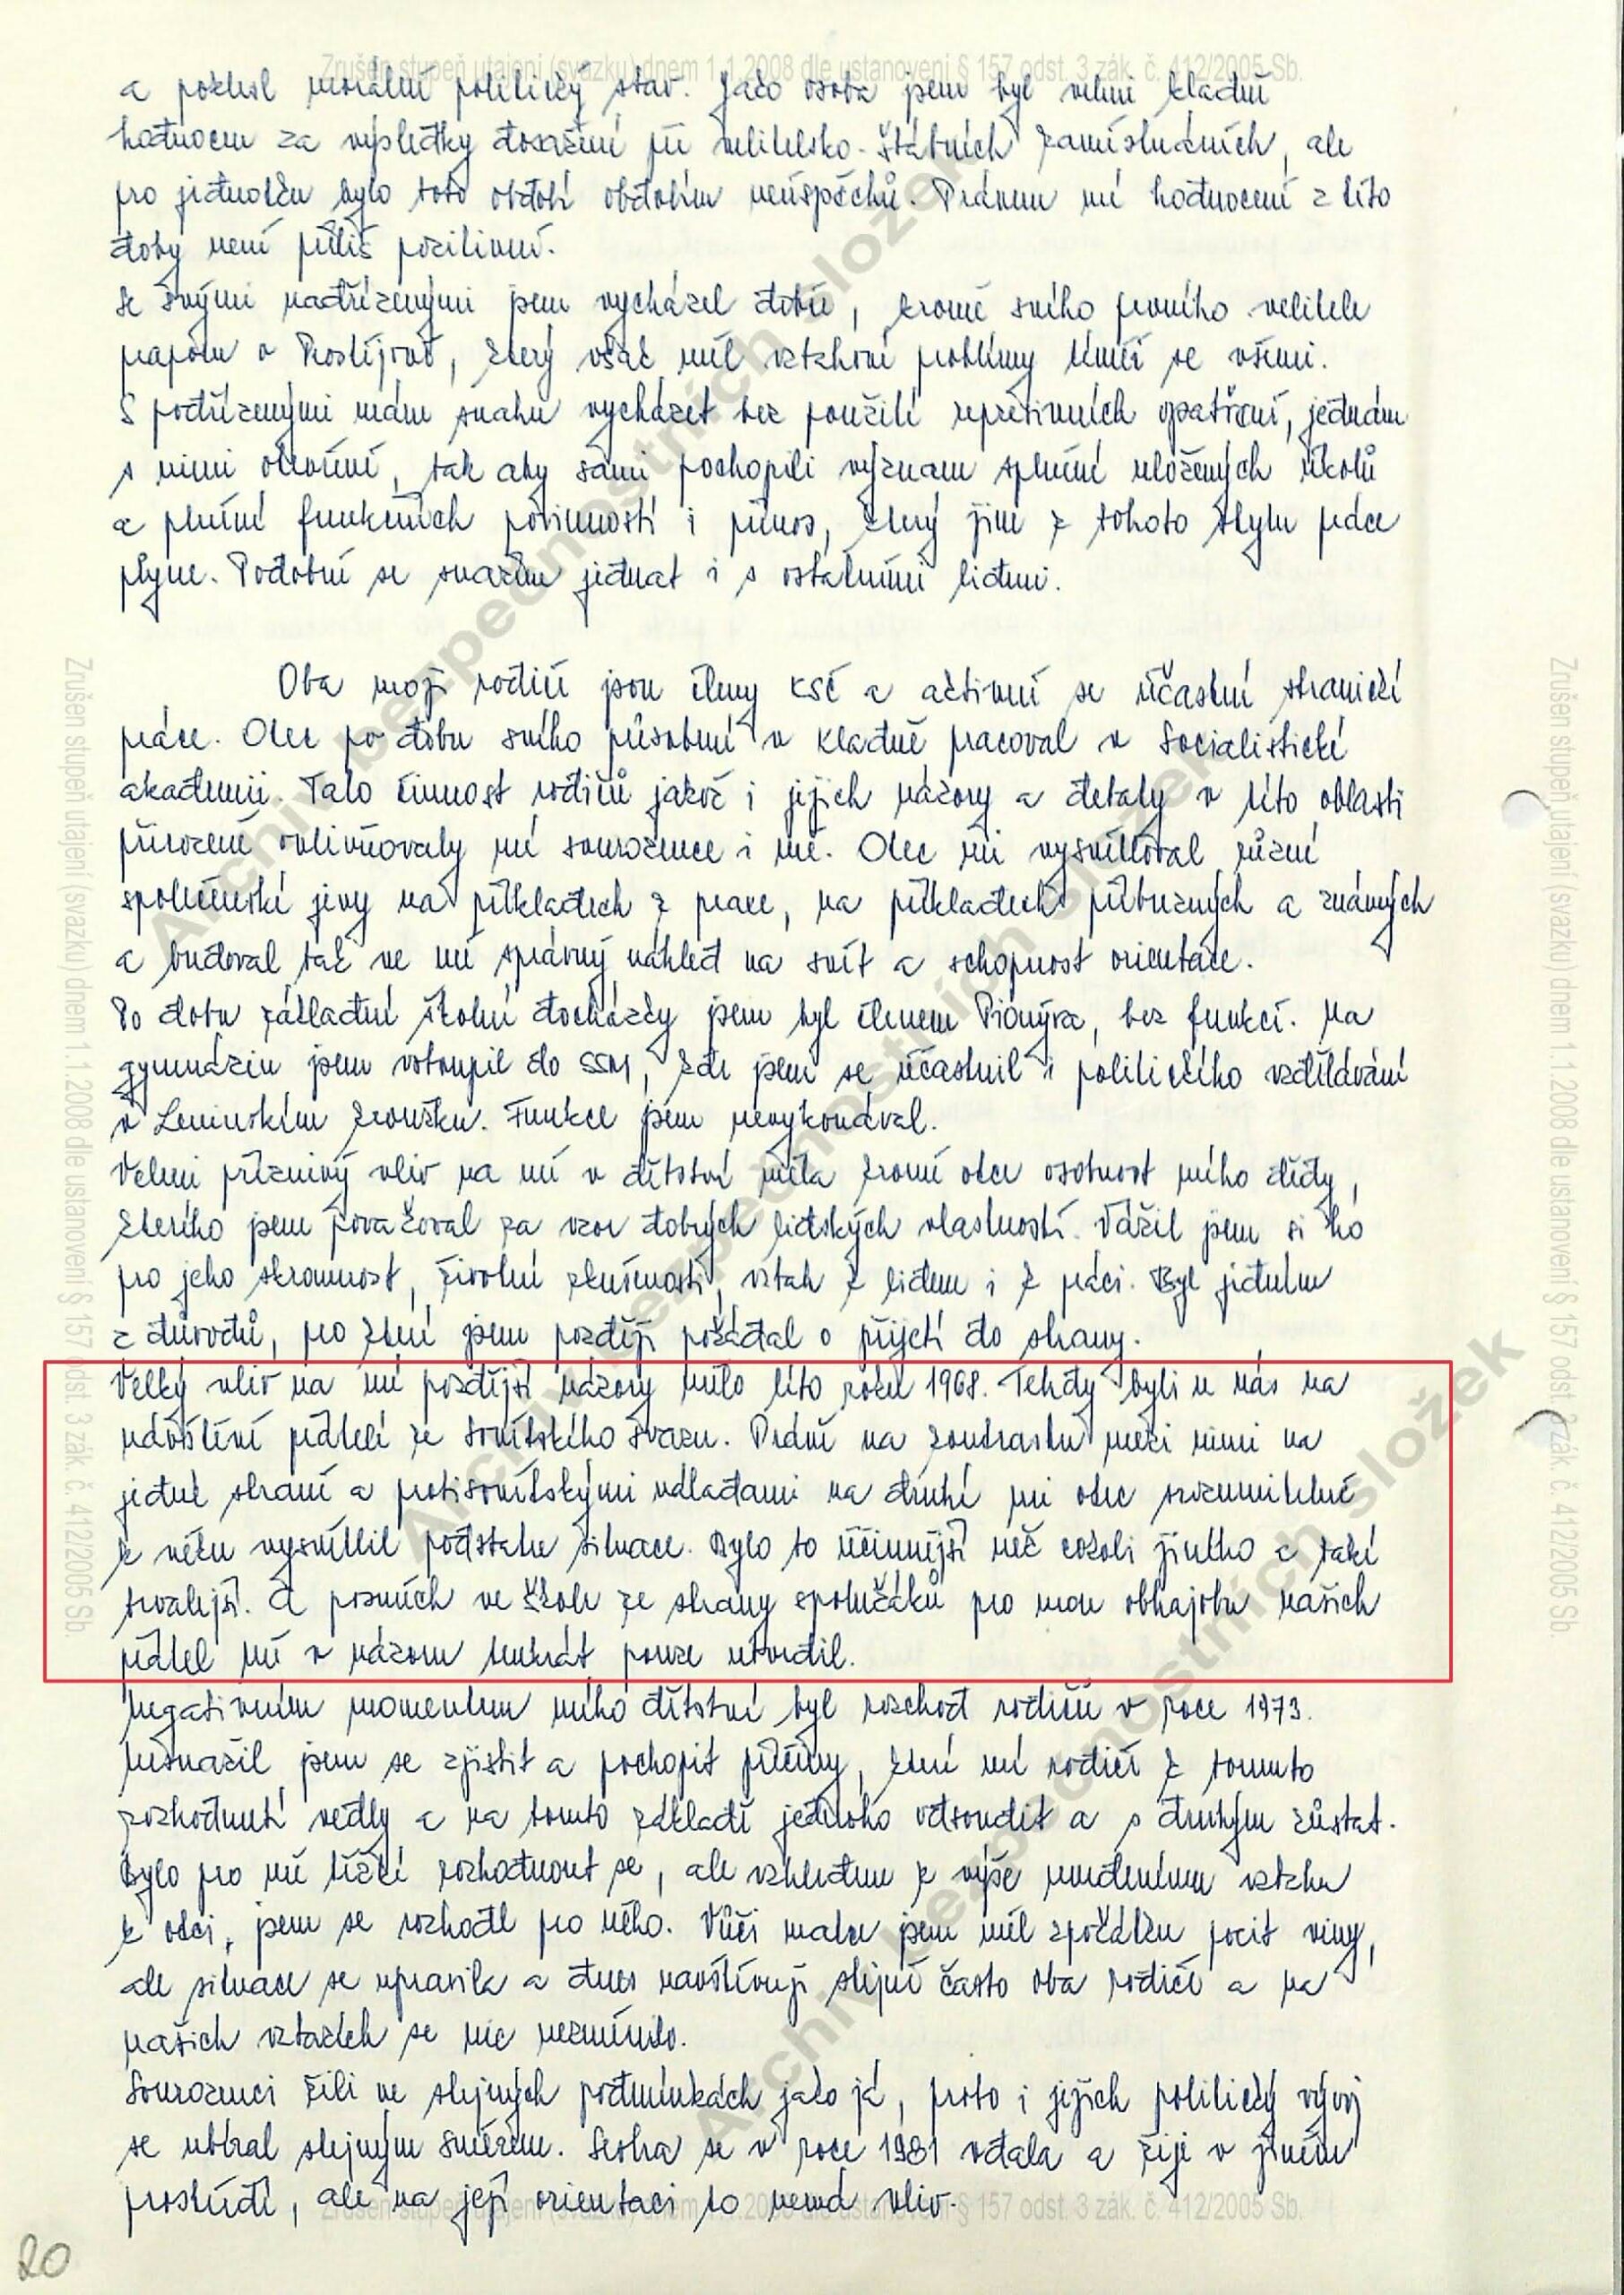 Zrušen stupeň utajení (svazku) dnem 1.1.2008 dle ustanovení § 157 odst. 3 zák. č. 412/2005 Sb.
a poklesl morálně politický stav. Jako osoba jsem byl velmi kladně
hodnocen za výsledky dosažené při velitelsko-štábních zaměstnáních, ale
pro jednotku bylo toto období obdobím neúspěchů. Právem mé hodnocení z této
doby není příliš pozitivní.
Se svými nadřízenými jsem vycházel dobře, kromě svého prvního velitele
praporu v Prostějově, který však měl vztahové problémy téměř se všemi.
S podřízenými mám snahu vycházet bez použití represivních opatření, jednám
s nimi otevřeně, tak aby sami pochopili význam splnění uložených úkolů
a plnění funkčních povinností i přínos, který jim z tohoto stylu práce
plyne. Podobně se snažím jednat i s ostatními lidmi.
Oba moji rodiče jsou členy KSČ a aktivně se účastní stranické
práce. Otec po dobu svého působení v Kladně pracoval v Socialistické
akademii. Tato činnost rodičů jakož i jejich názory a debaty v této oblasti
přirozeně ovlivňovaly mé sourozence i mě. Otec mi vysvětloval různé
společenské jevy na příkladech z práce, na příkladech příbuzných a známých
a budoval tak ve mě správný náhled na svět a schopnost orientace.
Po dobu základní školní docházky jsem byl členem Pionýra, bez funkcí. Na
gymnáziu jsem vstoupil do SSM, kde jsem se účastnil i politického vzdělávání
v Leninském kroužku. Funkce jsem nevykonával.
Velmi příznivý vliv na mě v dětství měla kromě otce osobnost mého dědy,
kterého jsem považoval za vzor dobrých lidských vlastností. Vážil jsem si ho
pro jeho skromnost, životní zkušenosti, vztah k lidem i k práci. Byl jedním
z důvodů, pro které jsem později požádal o přijetí do strany.
Velký vliv na mé pozdější názory mělo léto roku 1968. Tehdy byli u nás na
návštěvě přátelé ze Sovětského svazu. Právě na kontrastu mezi nimi na
jedné straně a protisovětskými náladami na druhé mi otec srozumitelně
k věku vysvětlil podstatu situace. Bylo to účinnější než cokoli jiného a také
trvalejší. A posměch ve škole ze strany spolužáků pro mou obhajobu našich
přátel mě v názoru tenkrát pouze utvrdil.
Negativním momentem mého dětství byl rozchod rodičů v roce 1973.
Nesnažil jsem se zjistit a pochopit příčiny, které mé rodiče k tomuto
rozhodnutí vedly a na tomto základě jednoho odsoudit a s druhým zůstat.
Bylo pro mě těžké rozhodnout se, ale vzhledem k výše uvedenému vztahu
k otci, jsem se rozhodl pro něho. Vůči matce jsem měl zpočátku pocit viny,
ale situace se upravila a dnes navštěvuji stejně často oba rodiče a na
našich vztazích se nic nezměnilo.
Sourozenci žili ve stejných podmínkách jako já, proto i jejich politický vývoj
se ubíral stejným směrem. Sestra se v roce 1981 vdala a žije v jiném
prostředí, ale na její orientaci to nemá vliv.
Zrušen stupeň utajení (svazku) dnem 1.1.2008 dle ustanovení § 157 odst. 3 zák. č. 412/2005 Sb.
20
Zrušen stupeň utajení (svazku) dnem 1.1.2008 dle ustanovení § 157 odst. 3 zák. č. 412/2005 Sb.
Zrušen stupeň utajení (svazku) dnem 1.1.2008 dle ustanovení § 157 odst. 3 zák. č. 412/2005 Sb.
Archiv bezpečnostních složek
Archiv bezpečnostních složek
Archiv bezpečnostních složek